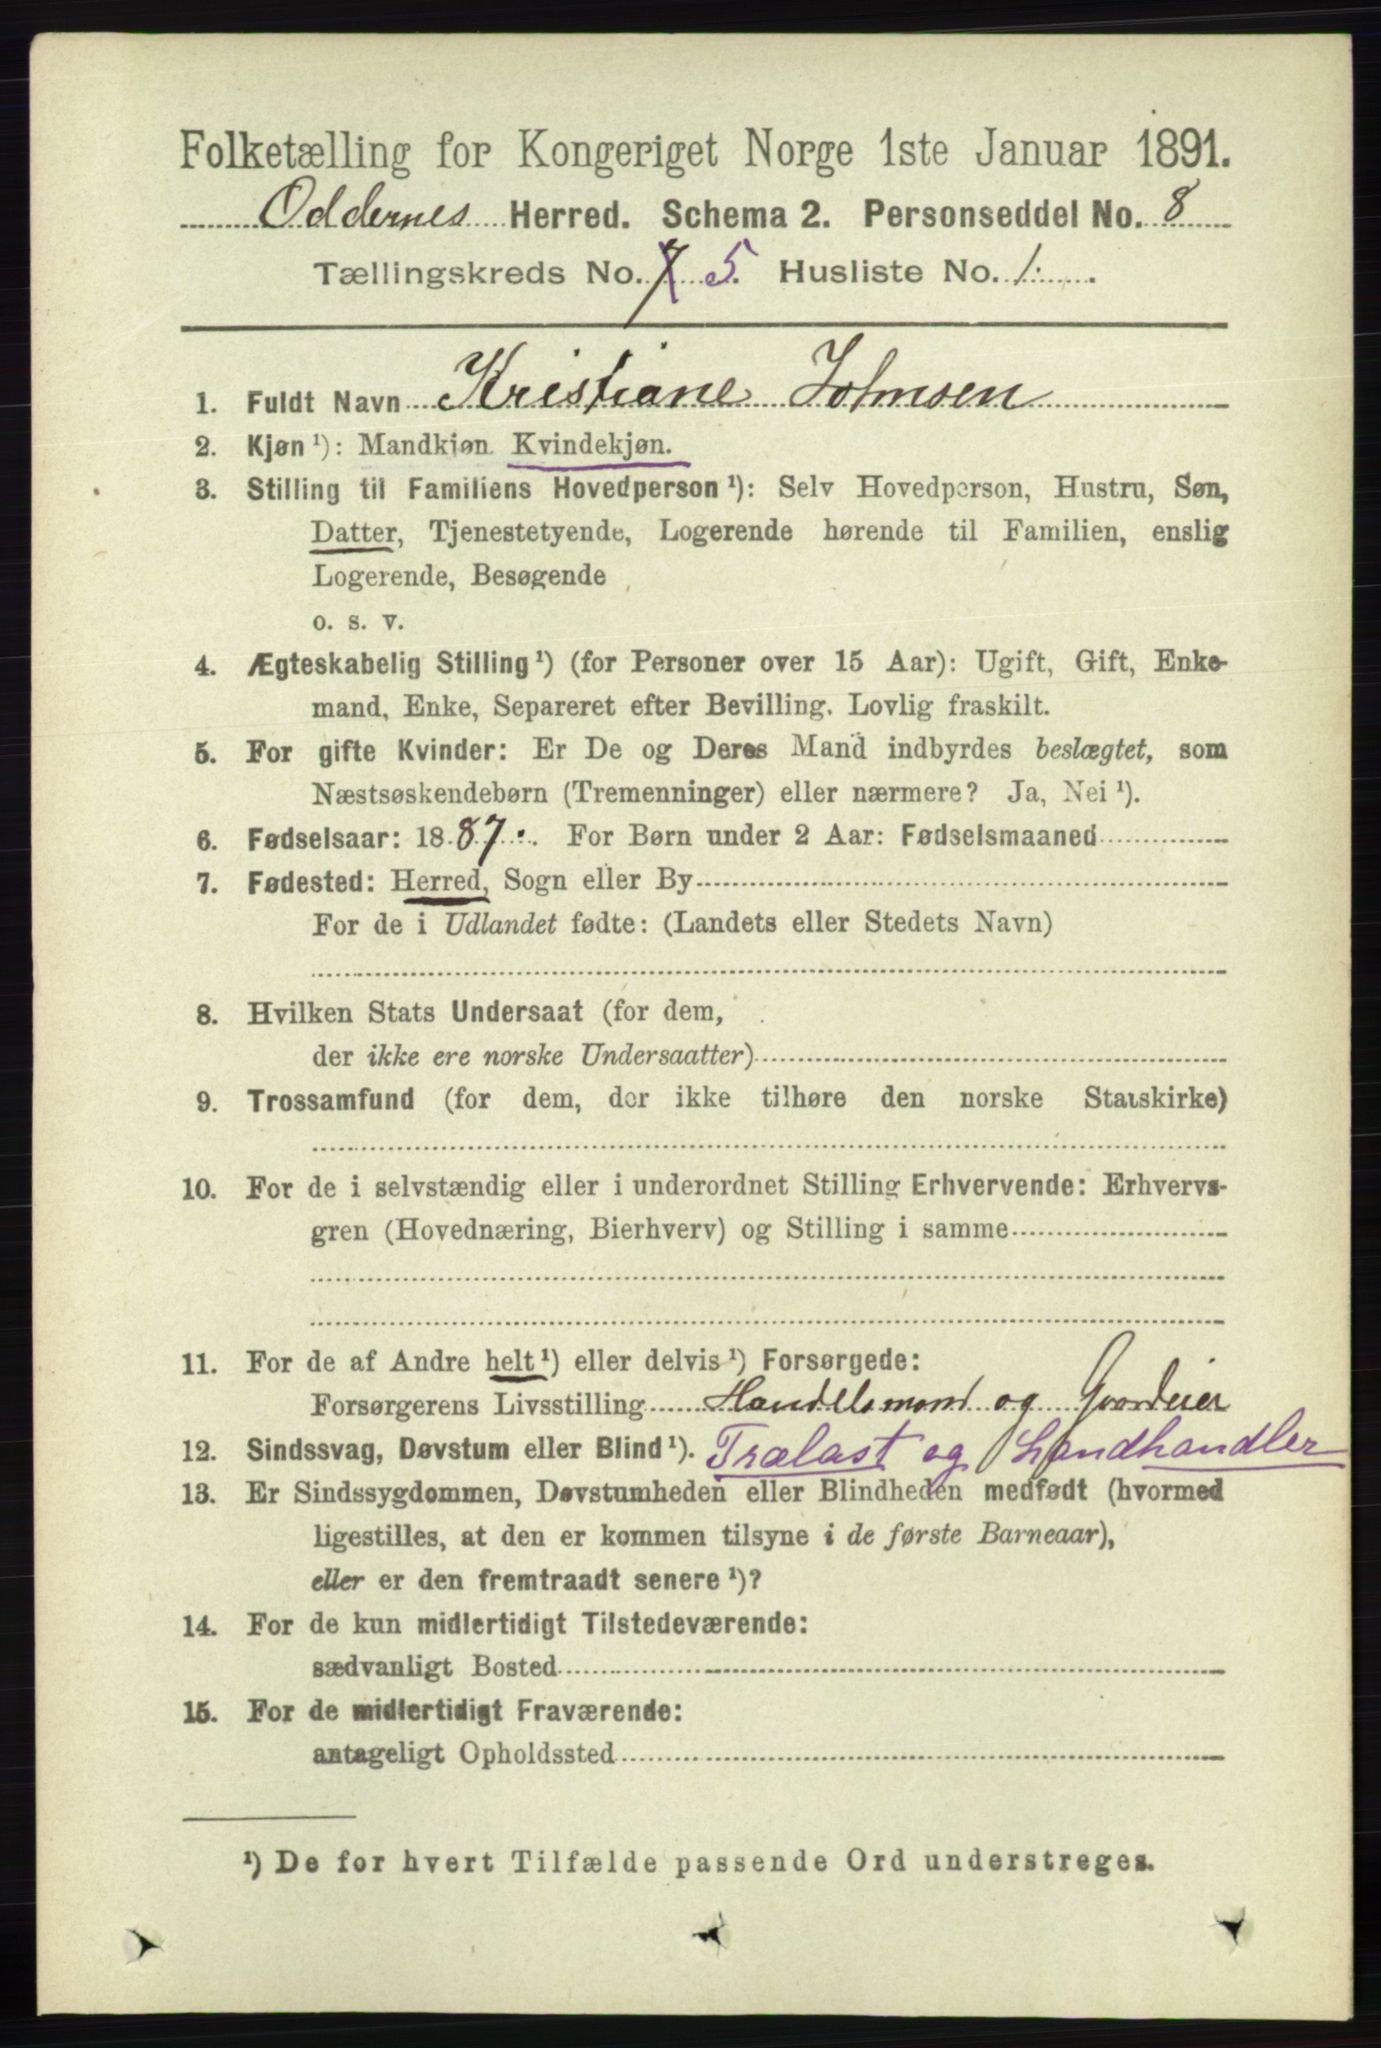 Folketælling for Kongeriget Norge 1ste Januar 1891.
Oddernes Herred. Schema 2. Personseddel No. 8
Tællingskreds No. 7 5. Husliste No. 1.
1. Fuldt Navn Kristiane Johnsen
2. Kjøn ¹): Mandkjøn Kvindekjøn.
3. Stilling til Familiens Hovedperson ¹): Selv Hovedperson, Hustru, Søn,
Datter, Tjenestetyende, Logerende hørende til Familien, enslig
Logerende, Besøgende
o. s. v.
4. Ægteskabelig Stilling ¹) (for Personer over 15 Aar): Ugift, Gift, Enke-
mand, Enke, Separeret efter Bevilling. Lovlig fraskilt.
5. For gifte Kvinder: Er De og Deres Mand indbyrdes beslægtet, som
Næstsøskendebørn (Tremenninger) eller nærmere? Ja, Nei ¹).
6. Fødselsaar: 1887. For Børn under 2 Aar: Fødselsmaaned
7. Fødested: Herred, Sogn eller By
For de i Udlandet fødte: (Landets eller Stedets Navn)
8. Hvilken Stats Undersaat (for dem,
der ikke ere norske Undersaatter)
9. Trossamfund (for dem, der ikke tilhøre den norske Statskirke)
10. For de i selvstændig eller i underordnet Stilling Erhvervende: Erhvervs-
gren (Hovednæring, Bierhverv) og Stilling i samme
11. For de af Andre helt ¹) eller delvis ¹) Forsørgede:
Forsørgerens Livsstilling Handelsmand og Gaardeier
12. Sindssvag, Døvstum eller Blind ¹). Trælast og Landhandler
13. Er Sindssygdommen, Døvstumheden eller Blindheden medfødt (hvormed
ligestilles, at den er kommen tilsyne i de første Barneaar),
eller er den fremtraadt senere ¹)?
14. For de kun midlertidigt Tilstedeværende:
sædvanligt Bosted
15. For de midlertidigt Fraværende:
antageligt Opholdssted
¹) De for hvert Tilfælde passende Ord understreges.